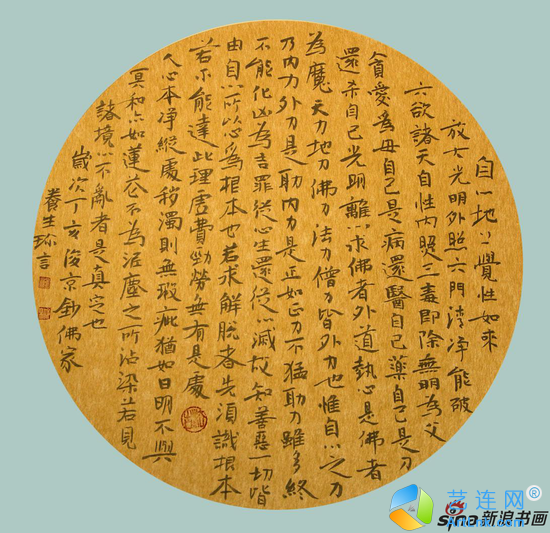 自心地上覺性如來
放大光明外照六門清净能破
六欲諸天自性內照三毒即除無明為父
貪愛為母自己是病還醫自己藥自己是刀
還杀自己光明離心求佛者外道執心是佛者
為魔天力地力佛力法力僧力皆外力也惟自心之力
乃內力外力是助內力是正如正力不猛助力雖多終
不能化凶為吉罪從心生還從心滅故知善惡一切皆
由自心所以心為根本也若求解脫者先須識根本
若不能達此理虛費勤勞無有是處
人心本净縱處穢濁則無瑕疵猶如日明不與
冥和亦如蓮花不為泥塵之所沾染若見
諸境心不亂者是真定也
歲次丁亥俊京鈔佛家
養生珎言
艺连网®
sina新浪书画